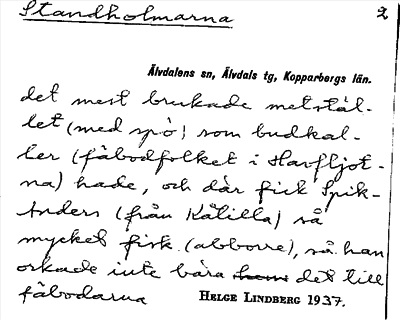 Standholmarna 2
Älvdalens sn, Älvdals tg, Kopparbergs län.
det mest brukade metstäl-
let (med spö) som budkal-
ler (fäbodfolket i Harfljot-
na) hade, och där fick Spik-
Anders (från Kåtilla) så
mycket fisk (abborre), så han
orkade inte bära hem det till
fäbodarna HELGE LINDBERG 1937.